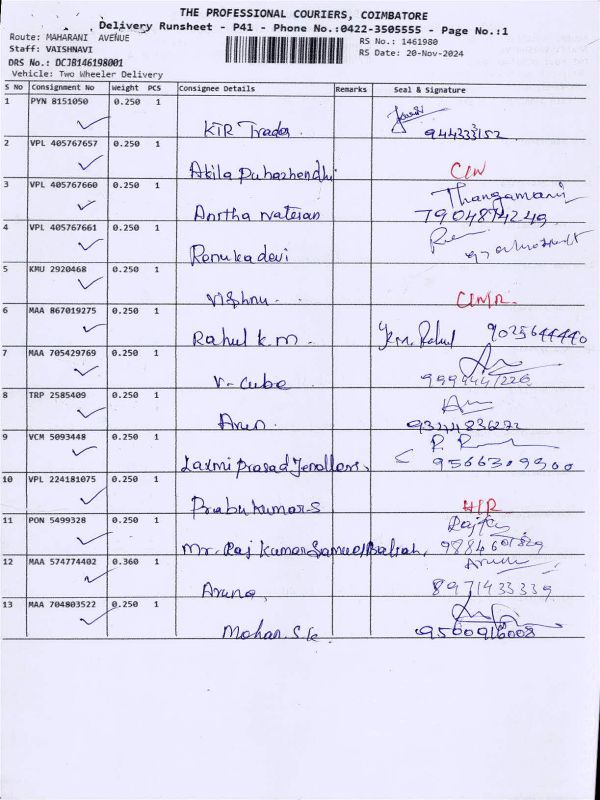 THE PROFESSIONAL COURIERS, COIMBATORE
Delivery Runsheet - P41 - Phone No.:0422-3505555 - Page No.:1
Route: MAHARANI AVENUE
RS No.: 1461980
Staff: VAISHNAVI
RS Date: 20-Nov-2024
DRS No.: DCJB146198001
Vehicle: Two Wheeler Delivery
S No Consignment No Weight PCS Consignee Details Remarks Seal & Signature
1 PYN 8151050 0.250 1
KTR Trades
2 VPL 405767657 0.250 1
Akila Puhazhendhi CIN
3 VPL 405767660 0.250 1 Thangamani
7904874249
4 VPL 405767661 0.250 1
Renuka devi
5 KMU 2920468 0.250 1
Vishnu.
6 MAA 867019275 0.250 1
Rahul k.m. K.M. Rahul 9025644440
7 MAA 705429769 0.250 1
V-Cube
8 TRP 2585409 0.250 1
Arun. 9344836272
9 VCM 5093448 0.250 1
Laxmi Prasad 9566309300
10 VPL 224181075 0.250 1
Prabu Kumar S
11 PON 5499328 0.250 1
Mr. Raj Kumar Samuel
12 MAA 574774402 0.360 1
Aruna, 8971433339
13 MAA 704803522 0.250 1
Mohan. S k 9500916008